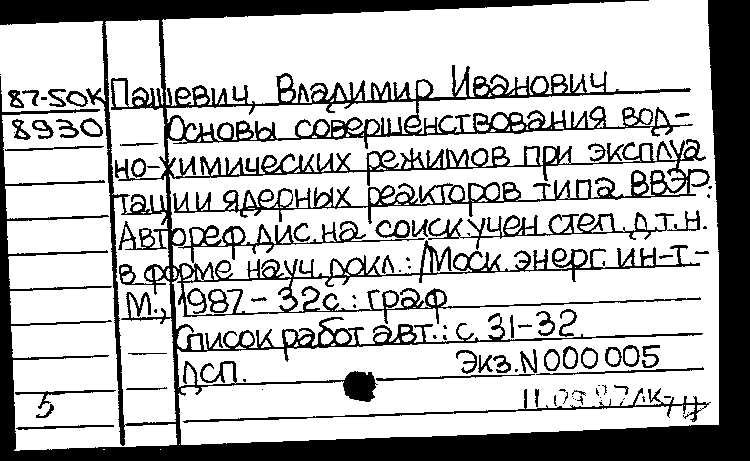 87-50К Пашевич, Владимир Иванович.
8930 Основы совершенствования вод-
но-химических режимов при эксплуа
тации ядерных реакторов типа ВВЭР:
Автореф.дис.на соиск.учен.степ.д.т.н.
в форме науч.докл.:/Моск.энерг.ин-т.-
М., 1987.- 32с.: граф
Список работ авт.: с. 31-32.
ДСП. Экз.N000005
5 11.09.87